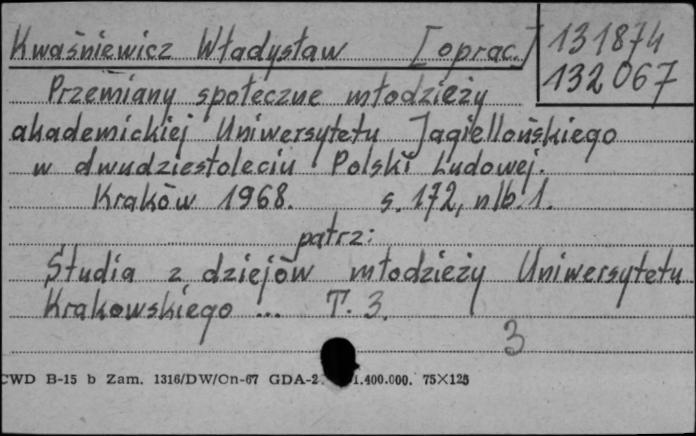 Kwaśniewicz Władysław [oprac.]
131874
132067
Przemiany społeczne młodzieży
akademickiej Uniwersytetu Jagiellońskiego
w dwudziestoleciu Polski Ludowej.
Kraków 1968. s. 172, nlb. 1.
patrz:
Studia z dziejów młodzieży Uniwersytetu
Krakowskiego ... T. 3.
3
CWD B-15 b Zam. 1316/DW/On-67 GDA-2 1.400.000. 75×125